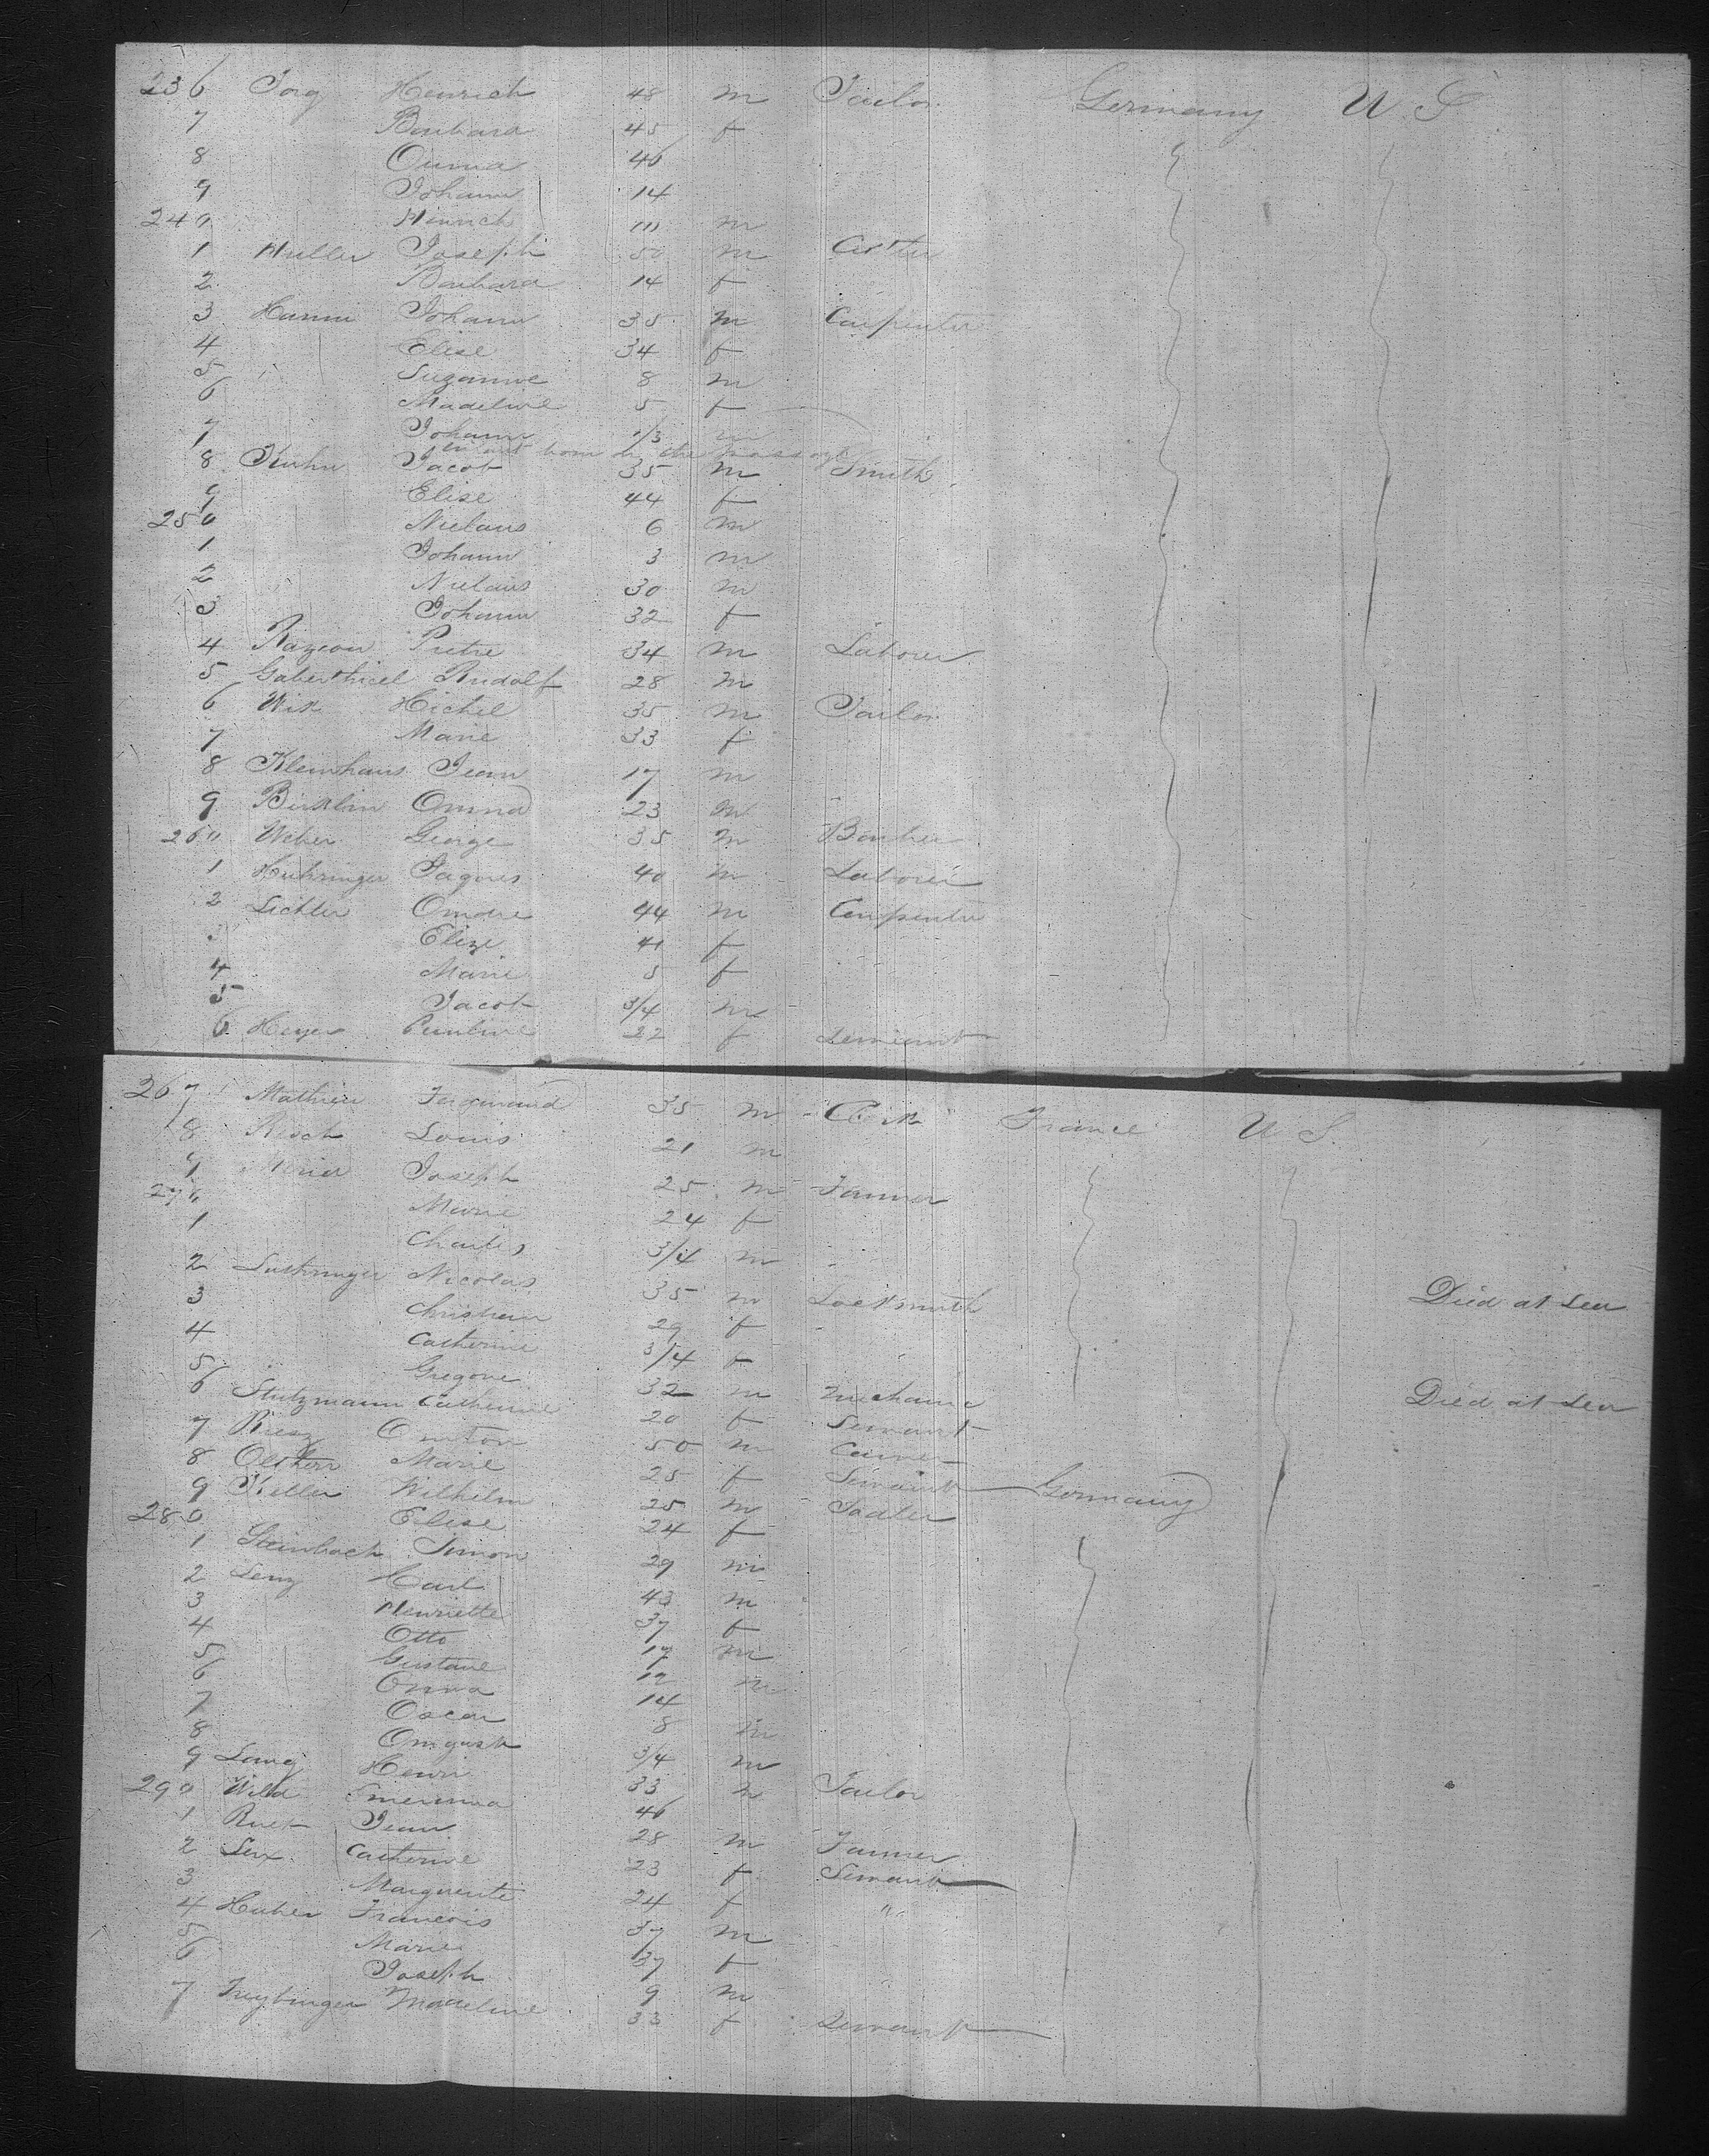 236 Jorg Heinrich 48 m Tailor Germany U. S
7 Barbara 45 f
8 Anna 46
9 Johann 14
240 Heinrich m
1 Muller Joseph 50 m
2 Barbara 14 f
3 Hamm Johann 35 m Carpenter
4 Elise 34 f
5 Suzanne 8 m
6 Madeline 5 f
7 Johann 1/3 m
born in the passage
8 Kuhn Jacob 35 m Smith
9 Elise 44 f
250 Niclaus 6 m
1 Johann 3 m
2 Niclaus 30 m
3 Johann 32 f
4 Pietre 34 m Laborer
5 Gaberthuel Rudolf 28 m
6 Wix Michel 35 m Tailor
7 Marie 33 f
8 Kleinhans Jean 17 m
9 Anna 23 m
260 Weber George 35 m Barber
1 Huhringer Jaques 40 m Laborer
2 Lichler Andre 44 m Carpenter
Elize 41 f
4 Marie 5 f
5 Jacob 3/4 m
6 Heyer Pauline 22 f Servant
267 Mathieu Ferdinand 35 m France U S.
8 Louis 21 m
9 Joseph 25 m Farmer
270 Marie 24 f
1 Charles 3/4 m
2 Lustringer Nicolas 35 m Locksmith Died at Sea
3 Christian 29 f
4 Catherine 3/4 f
5 Gregore 32 m Mechanic Died at Sea
6 Stutzmann Catherine 20 f Servant
7 Riesz Anton 50 m
8 Marie 25 f Servant Germany
9 Keller Wilhelm 25 m Sadler
280 Elise 24 f
1 Steinbach Simon 29 m
2 Lenz Carl 43 m
3 Henriette 37 f
4 Otto 17 m
5 Gustave 12 m
6 Anna 14
7 Oscar 8 m
8 August 3/4 m
9 Lang Henri 33 m Tailor
290 Wild 46
1 Ruet Jean 28 m Farmer
2 Lux Catherine 23 f Servant
3 Marguerite 24 f "
4 Huber Francois 37 m
5 Marie 37 f
6 Joseph 9 m
7 Freybinger Madeline 33 f Servant